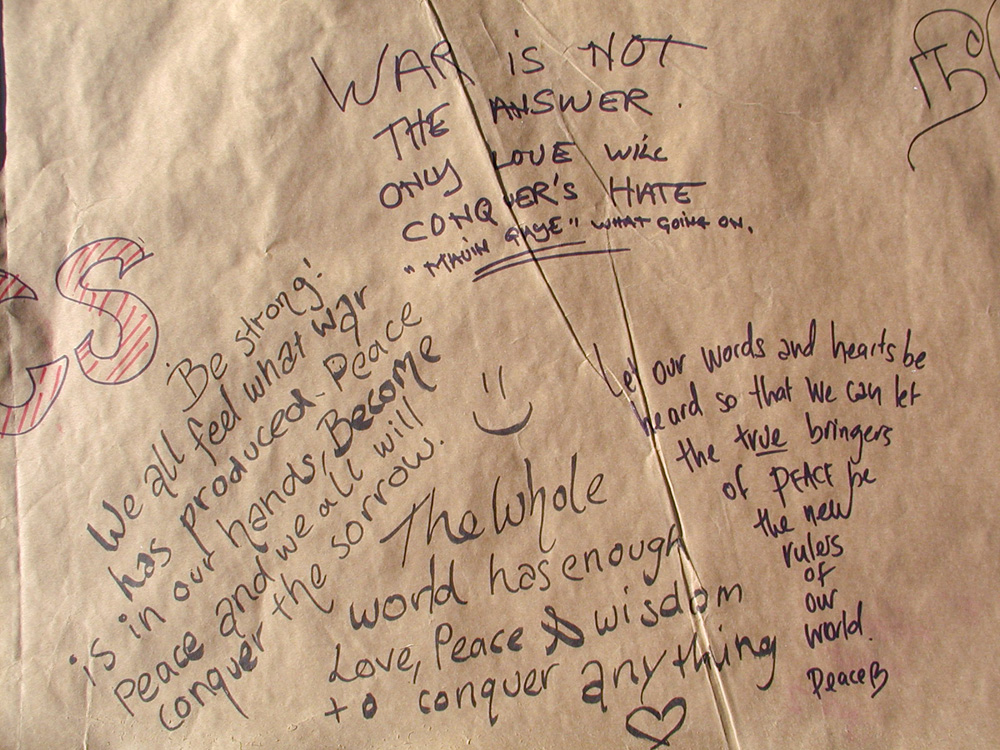 WAR is NOT
THE ANSWER.
ONLY LOVE WILL
CONQUER'S HATE
"MAVIN GAYE" WHAT GOING ON.
CS
Be strong!
We all feel what war
has produced. Peace
is in our hands, Become
Peace and we all will
conquer the sorrow.
The Whole
world has enough
Love, Peace & wisdom
to conquer anything
Let our words and hearts be
heard so that we can let
the true bringers
of PEACE be
the new
rulers
of
our
world.
Peace